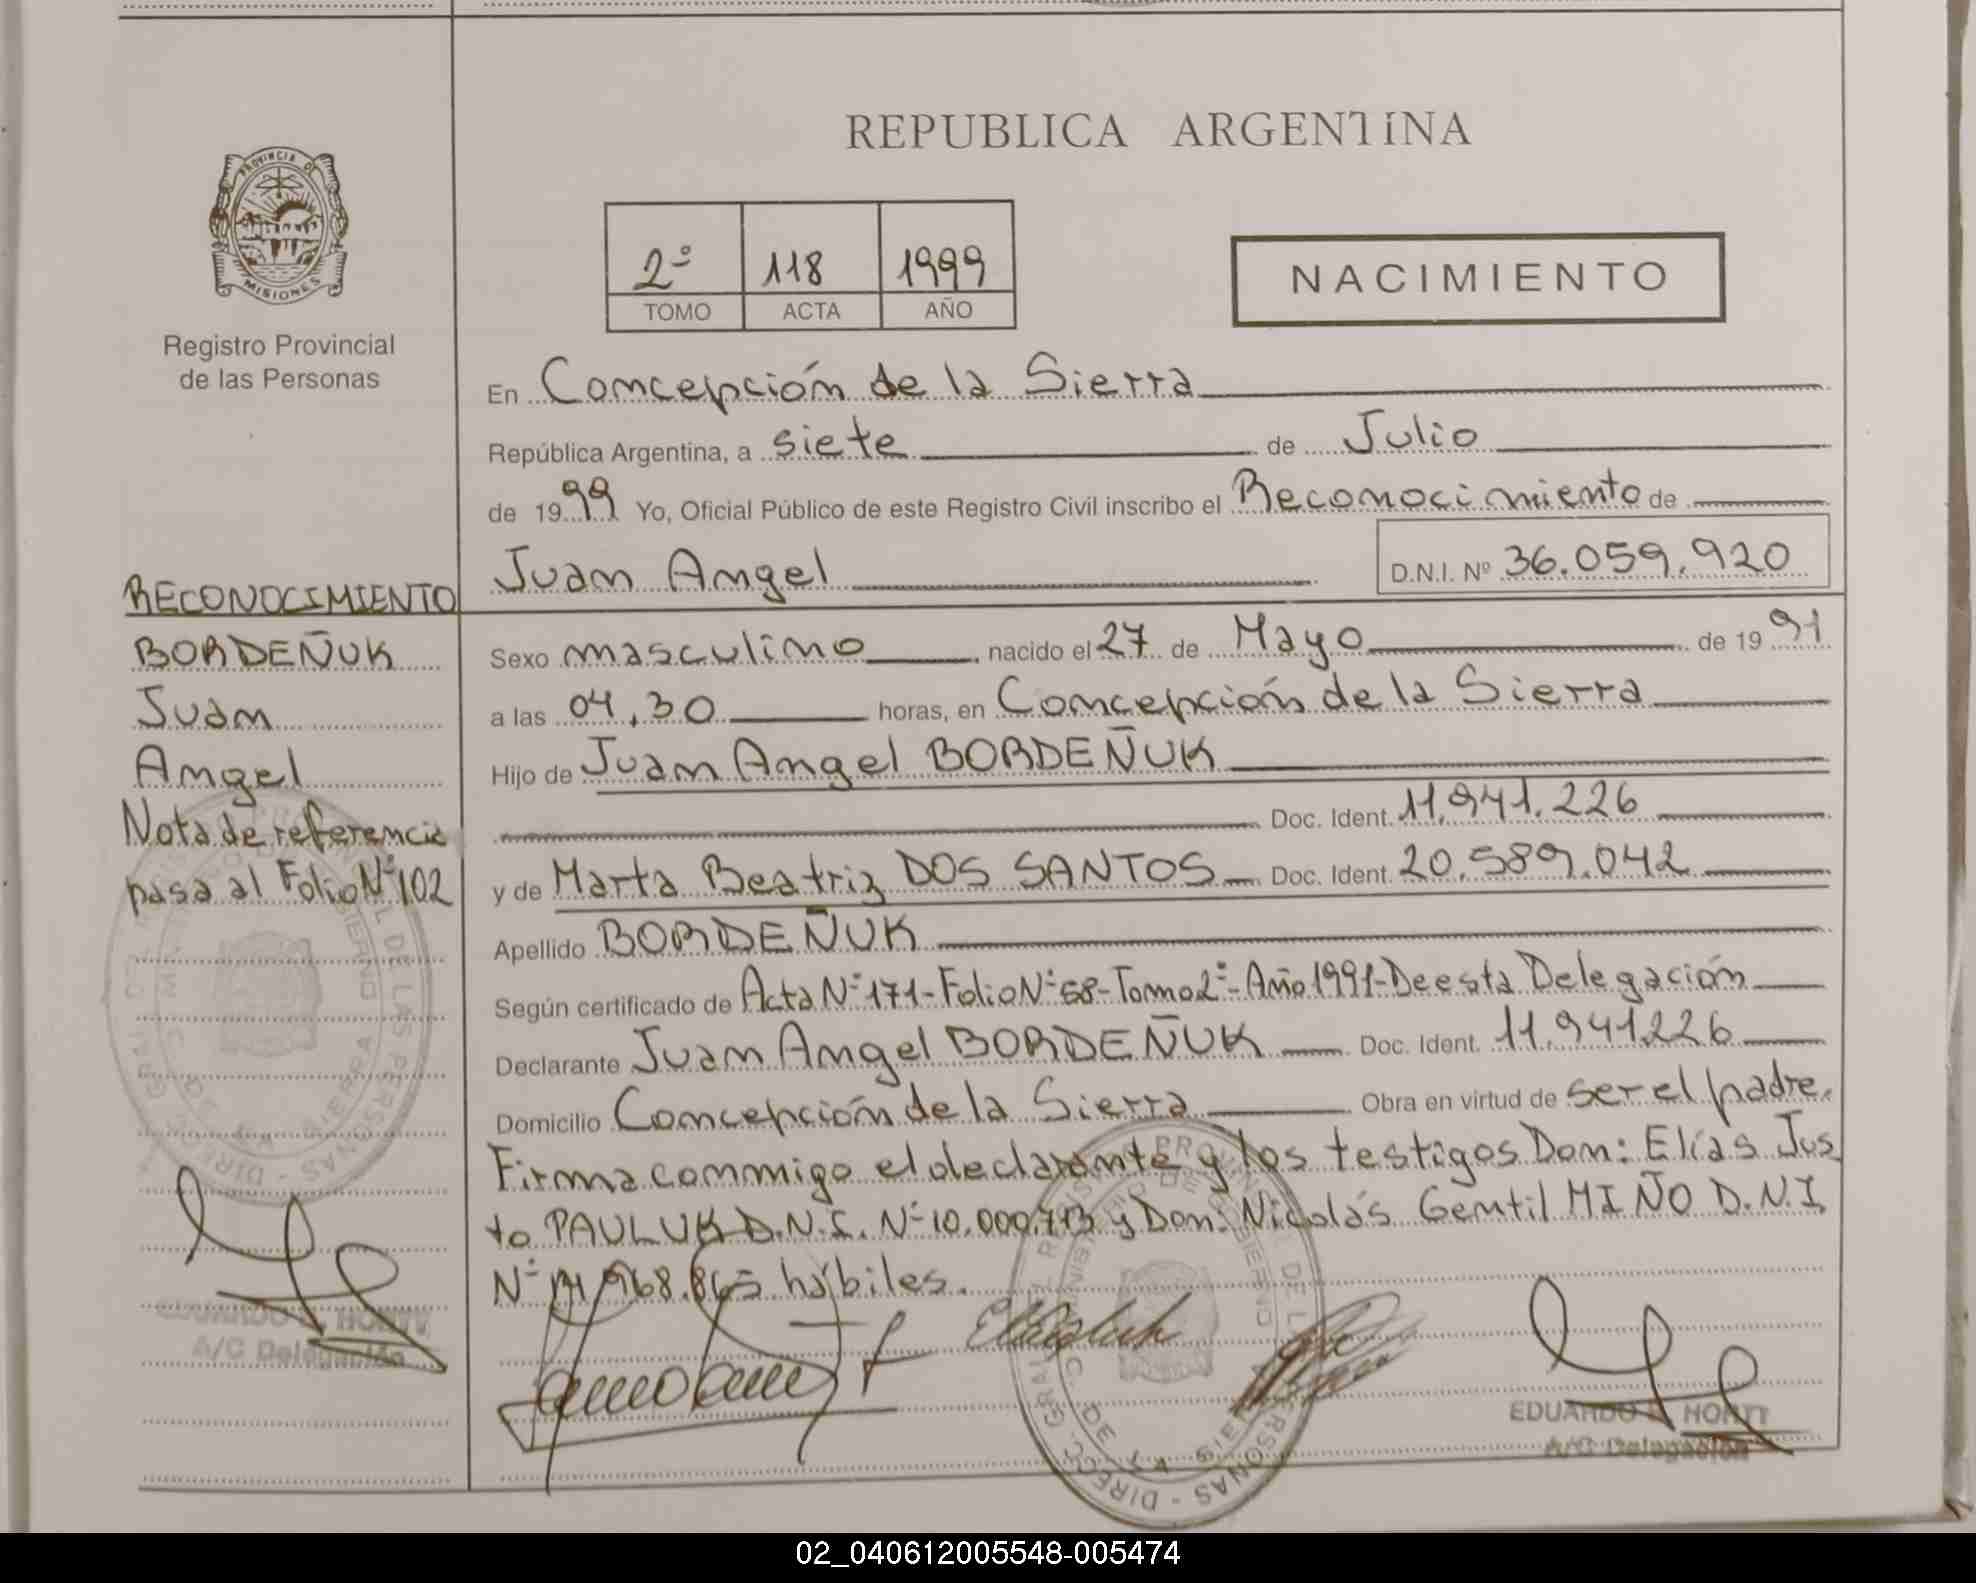 REPUBLICA ARGENTINA
PROVINCIA DE
MISIONES
Registro Provincial
de las Personas
2º 118 1999
TOMO ACTA AÑO
NACIMIENTO
En Concepción de la Sierra
República Argentina, a siete de Julio
de 1999 Yo, Oficial Público de este Registro Civil inscribo el Reconocimiento de
Juan Angel D.N.I. Nº 36.059.920
RECONOCIMIENTO
BORDEÑUK
Juan
Angel
Nota de referencia
pasa al Folio Nº 102
Sexo masculino nacido el 27 de Mayo de 1991
a las 04,30 horas, en Concepción de la Sierra
Hijo de Juan Angel BORDEÑUK
Doc. Ident. 11.941.226
y de Marta Beatriz DOS SANTOS Doc. Ident. 20.589.042
Apellido BORDEÑUK
Según certificado de Acta Nº 171-Folio Nº 68-Tomo 2º-Año 1991-De esta Delegación
Declarante Juan Angel BORDEÑUK Doc. Ident. 11.941.226
Domicilio Concepción de la Sierra Obra en virtud de ser el padre.
Firma conmigo el declarante y los testigos Don: Elías Jus
to PAULUK D.N.I. Nº 10.000.713 y Don: Nicolás Gentil MIÑO D.N.I
Nº hábiles.
EDUARDO HONTT
A/C Delegación
EDUARDO HONTT
A/C Delegación
02_040612005548-005474